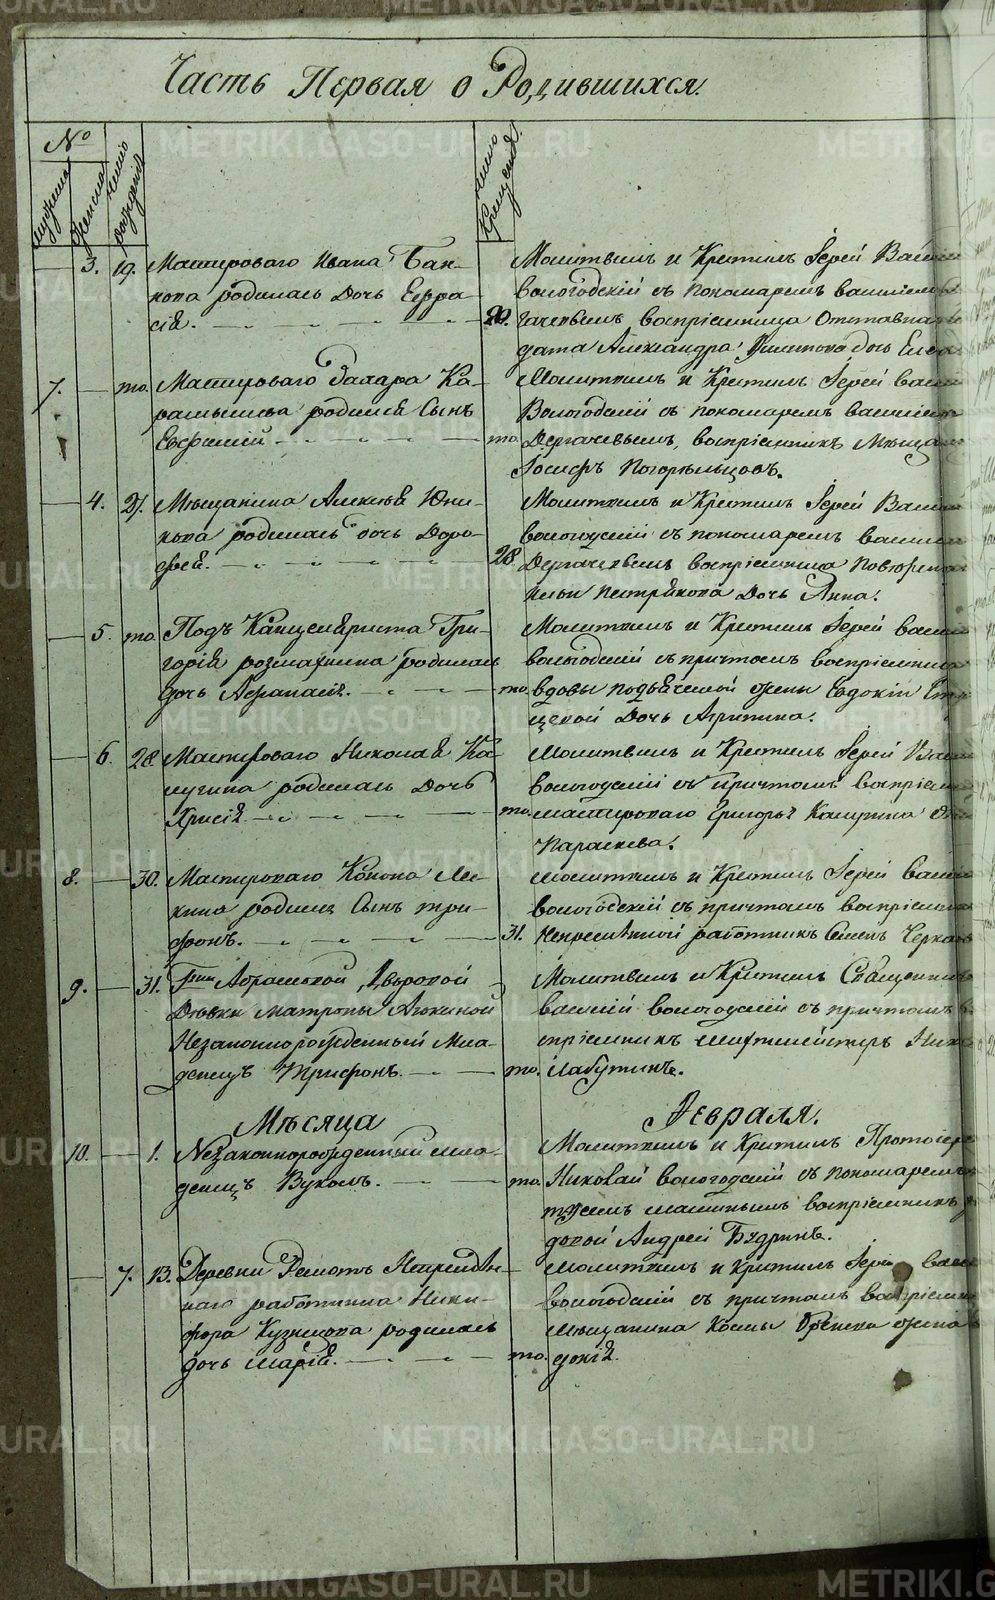 Часть Первая о Родившихся.
№
мужеска
женска
число рождения
число Крещения.
3. 19. Мастероваго Ивана Бан-
кова родилась Дочь Евфра-
сія. 20.
Молитвилъ и Крестилъ Іерей Васил
Вологодскій съ пономаремъ василіемъ
гачевымъ воспріемница Отставна
дата Александра Филипова дочь Елеа
7. то. Мастероваго Захара Ка-
рамышева родился Сынъ
Евфимій то.
Молитвилъ и Крестилъ Іерей васил
Вологодскій съ пономаремъ василіем
Дергачевымъ, воспріемникъ Мещан
Іосифъ Погорельцовъ.
4. 27. Мещанина Алексѣя Юни-
кова родилась дочь Доро-
фея. 28.
Молитвилъ и Крестилъ Іерей Васил
вологодскій съ пономаремъ васил
Дергачевымъ воспріемница
Дочь Анна.
5. то. Подъ Канцеляриста Гри-
горія родилась
дочь Афанасія. то.
Молитвилъ и Крестилъ Іерей васил
вологодскій съ причтомъ воспріемница
вдовы подъяческой жены Евдокіи
Дочь Агрипина.
6. 28. Мастероваго Николая Ка-
лугина родилась Дочь
Хрисія. то.
Молитвилъ и Крестилъ Іерей Васил
вологодскій съ причтомъ воспріем
мастероваго Григорья Калугина
Параскева.
8. 30. Мастероваго Конона Ле-
кина родился Сынъ Три-
фонъ. 31.
Молитвилъ и Крестилъ Іерей васил
вологодскій съ причтомъ воспріемник
Непременный работникъ Семенъ Черка
9. 31. Гжи Абрамовой Дворовой
Дѣвки Матроны
Незаконнорожденный Мла-
денецъ Трифонъ. то.
Молитвилъ и Крестилъ Священник
василій вологодскій съ причтомъ в
спріемникъ шихтмейстеръ Ник
Лабутинъ.
Мѣсяца Февраля.
10. 1. Незаконнорожденный мла-
денецъ Вуколъ. то.
Молитвилъ и Крестилъ Протоіере
Николай вологодскій съ пономарем
воспріемникъ
довой Андрей Будринъ.
7. 13. Деревни Решотъ Непремѣн-
наго работника Ники-
фора Кузнецова родилась
дочь Марія. то.
Молитвилъ и крестилъ Іерей васи
вологодскій съ причтомъ воспріемни
Мещанина Козмы жена
докія.
METRIKI.GASO-URAL.RU